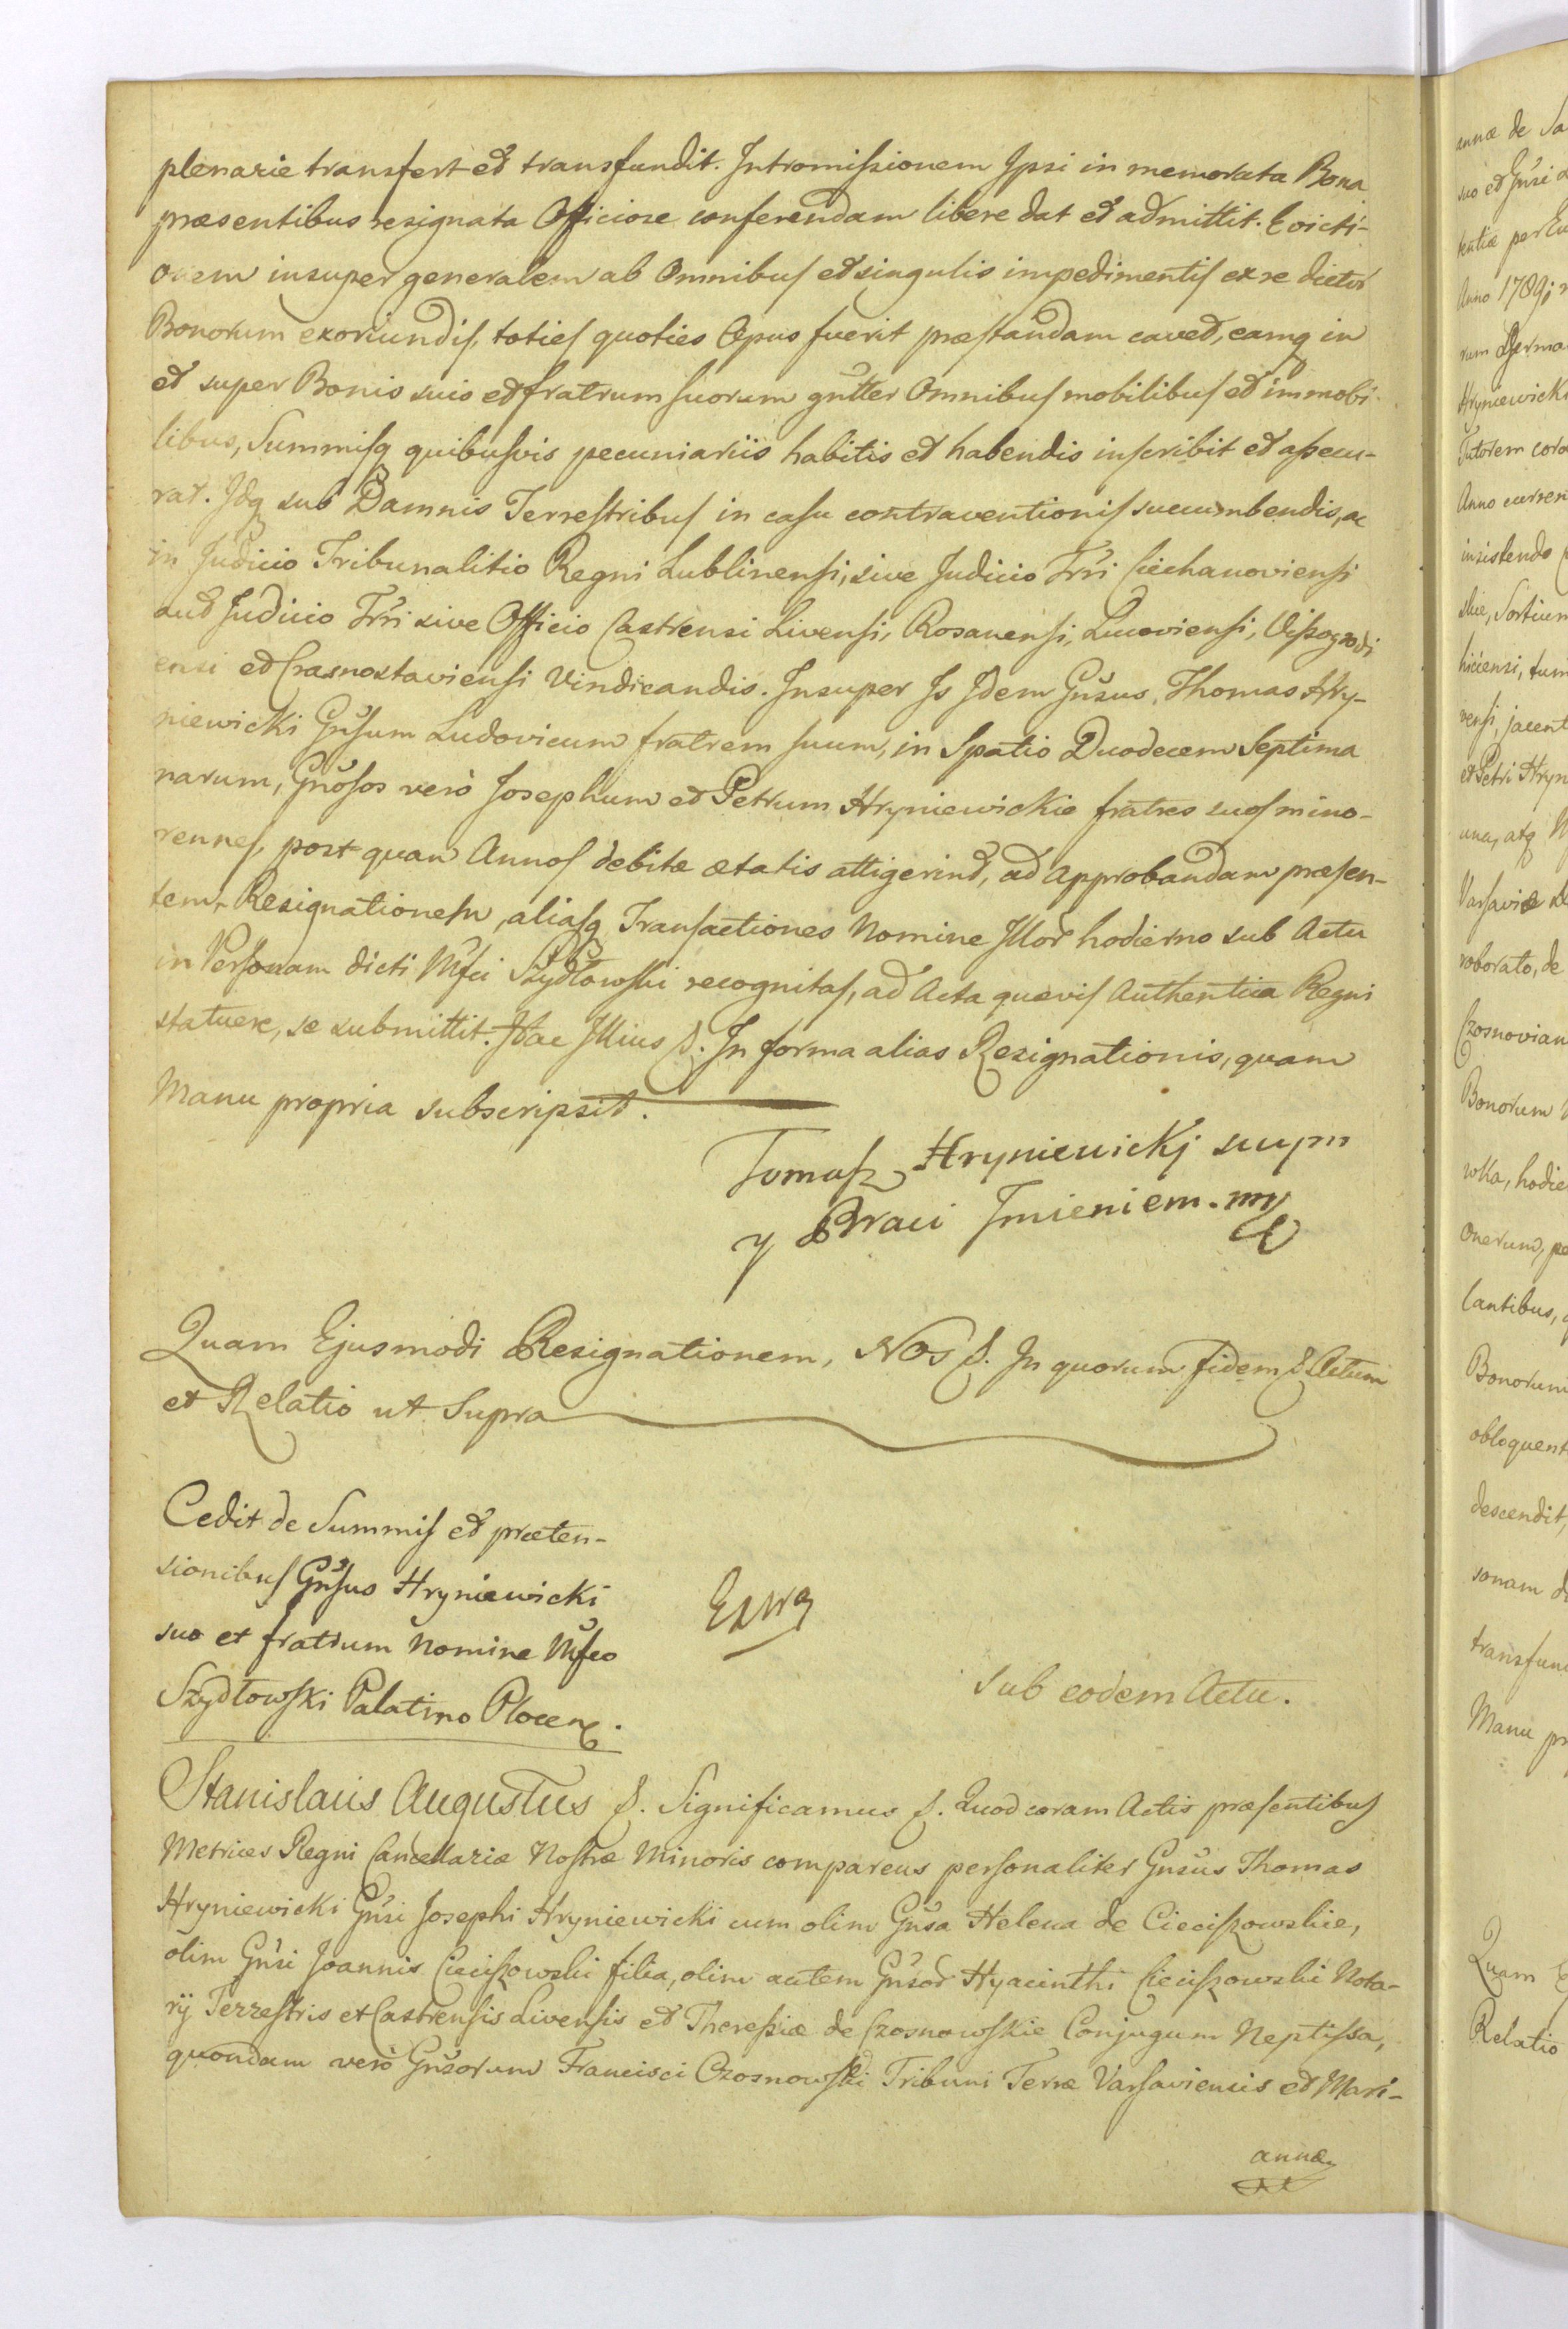 plenarie transfert et transfundit. Intromissionem Ipsi in memorata Bona
præsentibus resignata Officiose conferendam libere dat et admittit. Evicti-
onem insuper generalem ab Omnibus et singulis impedimentis ex re dictor
Bonorum exoriundis, toties quoties Opus fuerit præstandam caved, eamq in
et super Bonis suis et fratrum suorum gnrter Omnibus mobilibus et immobi-
libus, Summisq quibusvis pecuniariis habitis et habendis inscribit et assecu-
rat. Idq sub Damnis Terrestribus in casu contraventionis succumbendis, ac
in Judicio Tribunalitio Regni Lublinensi, sive Judicio Trri Ciechanoviensi
aud Judicio Trri sive Officio Castrensi Livensi, Rosanensi, Lucoviensi, Vissogrodi
ensi et Crasnostaviensi Vindicandis. Insuper Is Idem Gnsus, Thomas Hry-
niewicki Gnsum Ludovicum fratrem suum, in Spatio Duodecem Septima
narum, Gnosos verò Josephum et Petrum Hryniewickie fratres suos mino-
rennes, postquan Annos debitæ ætatis attigerint, ad approbandam præsen-
tem Resignationem, aliasq Transactiones Nomine Illor hodierno sub Actu
in Personam dicti Mfci Szydłowski recognitas, ad Acta quævis Authentica Regni
statuere, se submittit. Hac Illius &. In forma alias Resignationis, quam
Manu propria subscripsit.
Tomasz Hryniewickj swym
y Braci Jmieniem. mp
Quam Ejusmodi Resignationem, Nos &. In quorum fidem & Actum
et Relatio ut Supra
Cedit de Summis et præten-
sionibus Gnsus Hryniewicki
suo et fratrum Nomine Mfco
Szydłowski Palatino Plocen.
Sub eodem Actu.
Stanislaus Augustus &. Significamus &. Quod coram Actis præsentibus
Metrices Regni Cancellariæ Nostræ Minoris comparens personaliter Gnsus Thomas
Hryniewicki Gnsi Josephi Hryniewicki cum olim Gnsa Helena de Cieciszowskie,
olim Gnsi Joannis Cieciszowski filia, olim autem Gnsor Hyacinthi Cieciszowski Nota-
rij Terrestris et Castrensis Livensis et Theressiæ de Czosnowskie Conjugum Neptissa,
quondam verò Gnsorum Francisci Czosnowski Tribuni Terræ Varsaviensis et Mari-
annæ